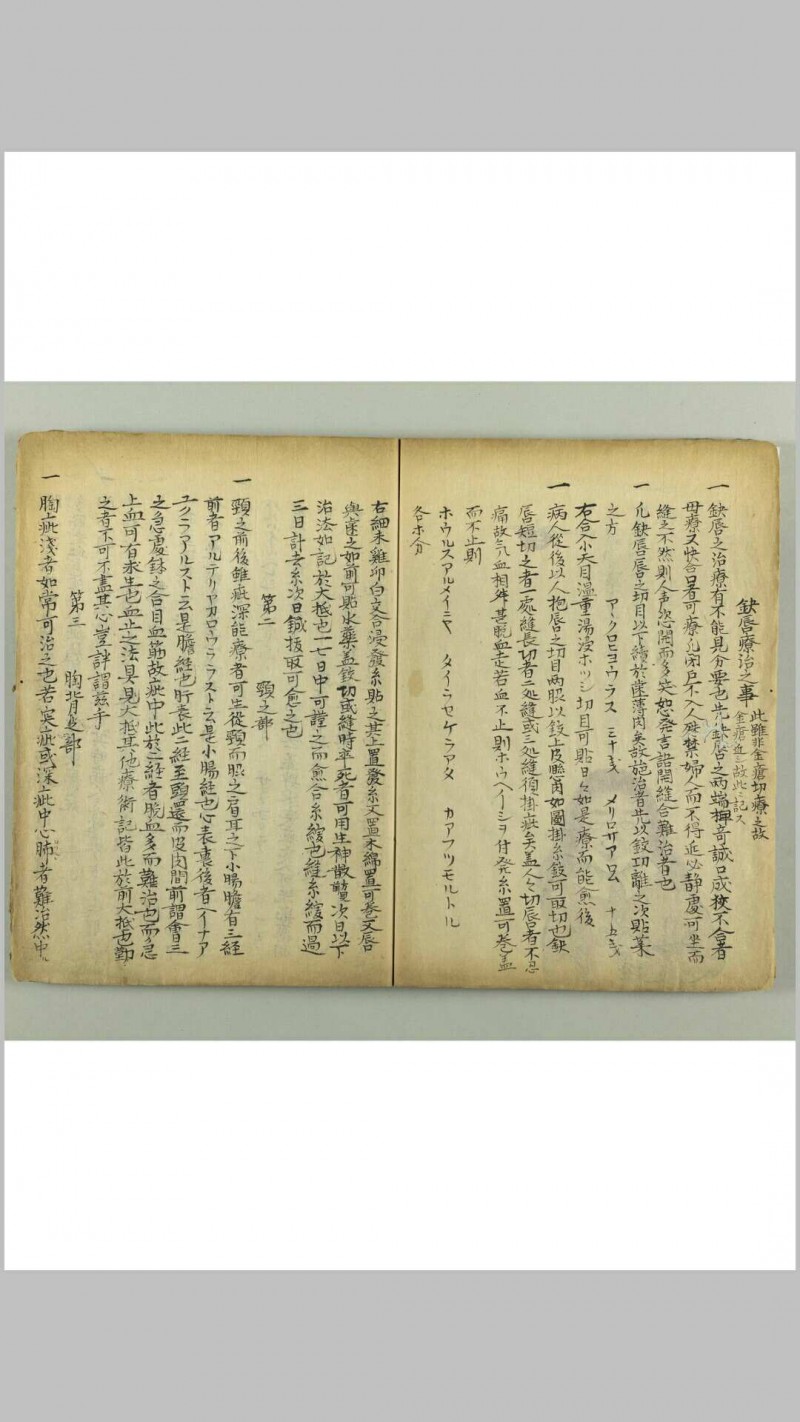 缺唇療治之事 此雖非金瘡切療之故
金瘡血ニ故此ニ記ス
一 缺唇之治療有不能見分要也先缺唇之両端 奇誠口成 不合者
毋療又快合口者可療凡閉戸不入人 禁婦人而不得近必静處可坐而
縫之不然則人声 閙而多笑如 発言語閙縫合難治者也
一 凡缺唇唇之切目以下 於歯薄肉 故施治者先以鋏切離之次貼薬
之方 アヽクロヒヨウラス 三十戔 メリロサアロム 十五戔
右合入小天目温重湯浸ホツシ切目可貼日々如是療而能愈後
一 病人從後以人抱唇之切目両股以鋏上皮 角如圖掛糸鋏可取切也缺
唇短切之者一処縫長切者二処縫或三処縫須掛疵矣蓋人々切唇者不忍
痛故気血相 甚脱血走若血不止則ホウヘイーシヲ付発糸置可巻蓋
而不止則
ホウルスアルメイニヤ タイラセケラアタ カアフツモルトル
各ホ分
右細末雞卵白交合浸發糸貼之其上置發糸又置木綿置可巻又唇
與歯之如前可貼水薬蓋鋏切或縫時卒死者可用生神散 次日以下
治法如記於大抵也一七日中可謹之而愈合糸緩也縫糸緩而過
三日計去糸次日鍼抜取可愈之也
第二 頸之部
一 頸之前後雖疵深能療者可生從頸而股之 耳之下小腸膽有三経
前者アルテリヤカロウラヽラスト云是小腸経也心表裏後者ヘイーナア
ユクラアルスト云是膽経也肝表此二経至頭還而皮肉間前謂會三
之急處 之合目血筋故疵中此於二経者脱血多而難治也而々忌
上血可有永生也血止之法具見大抵其他療術記皆此於前大抵也
之者不可不盡其心豈 謂兹乎
第三 胸背 部
一 胸疵淺者如常可治之也若突疵或深疵中心肺者難治然中ル